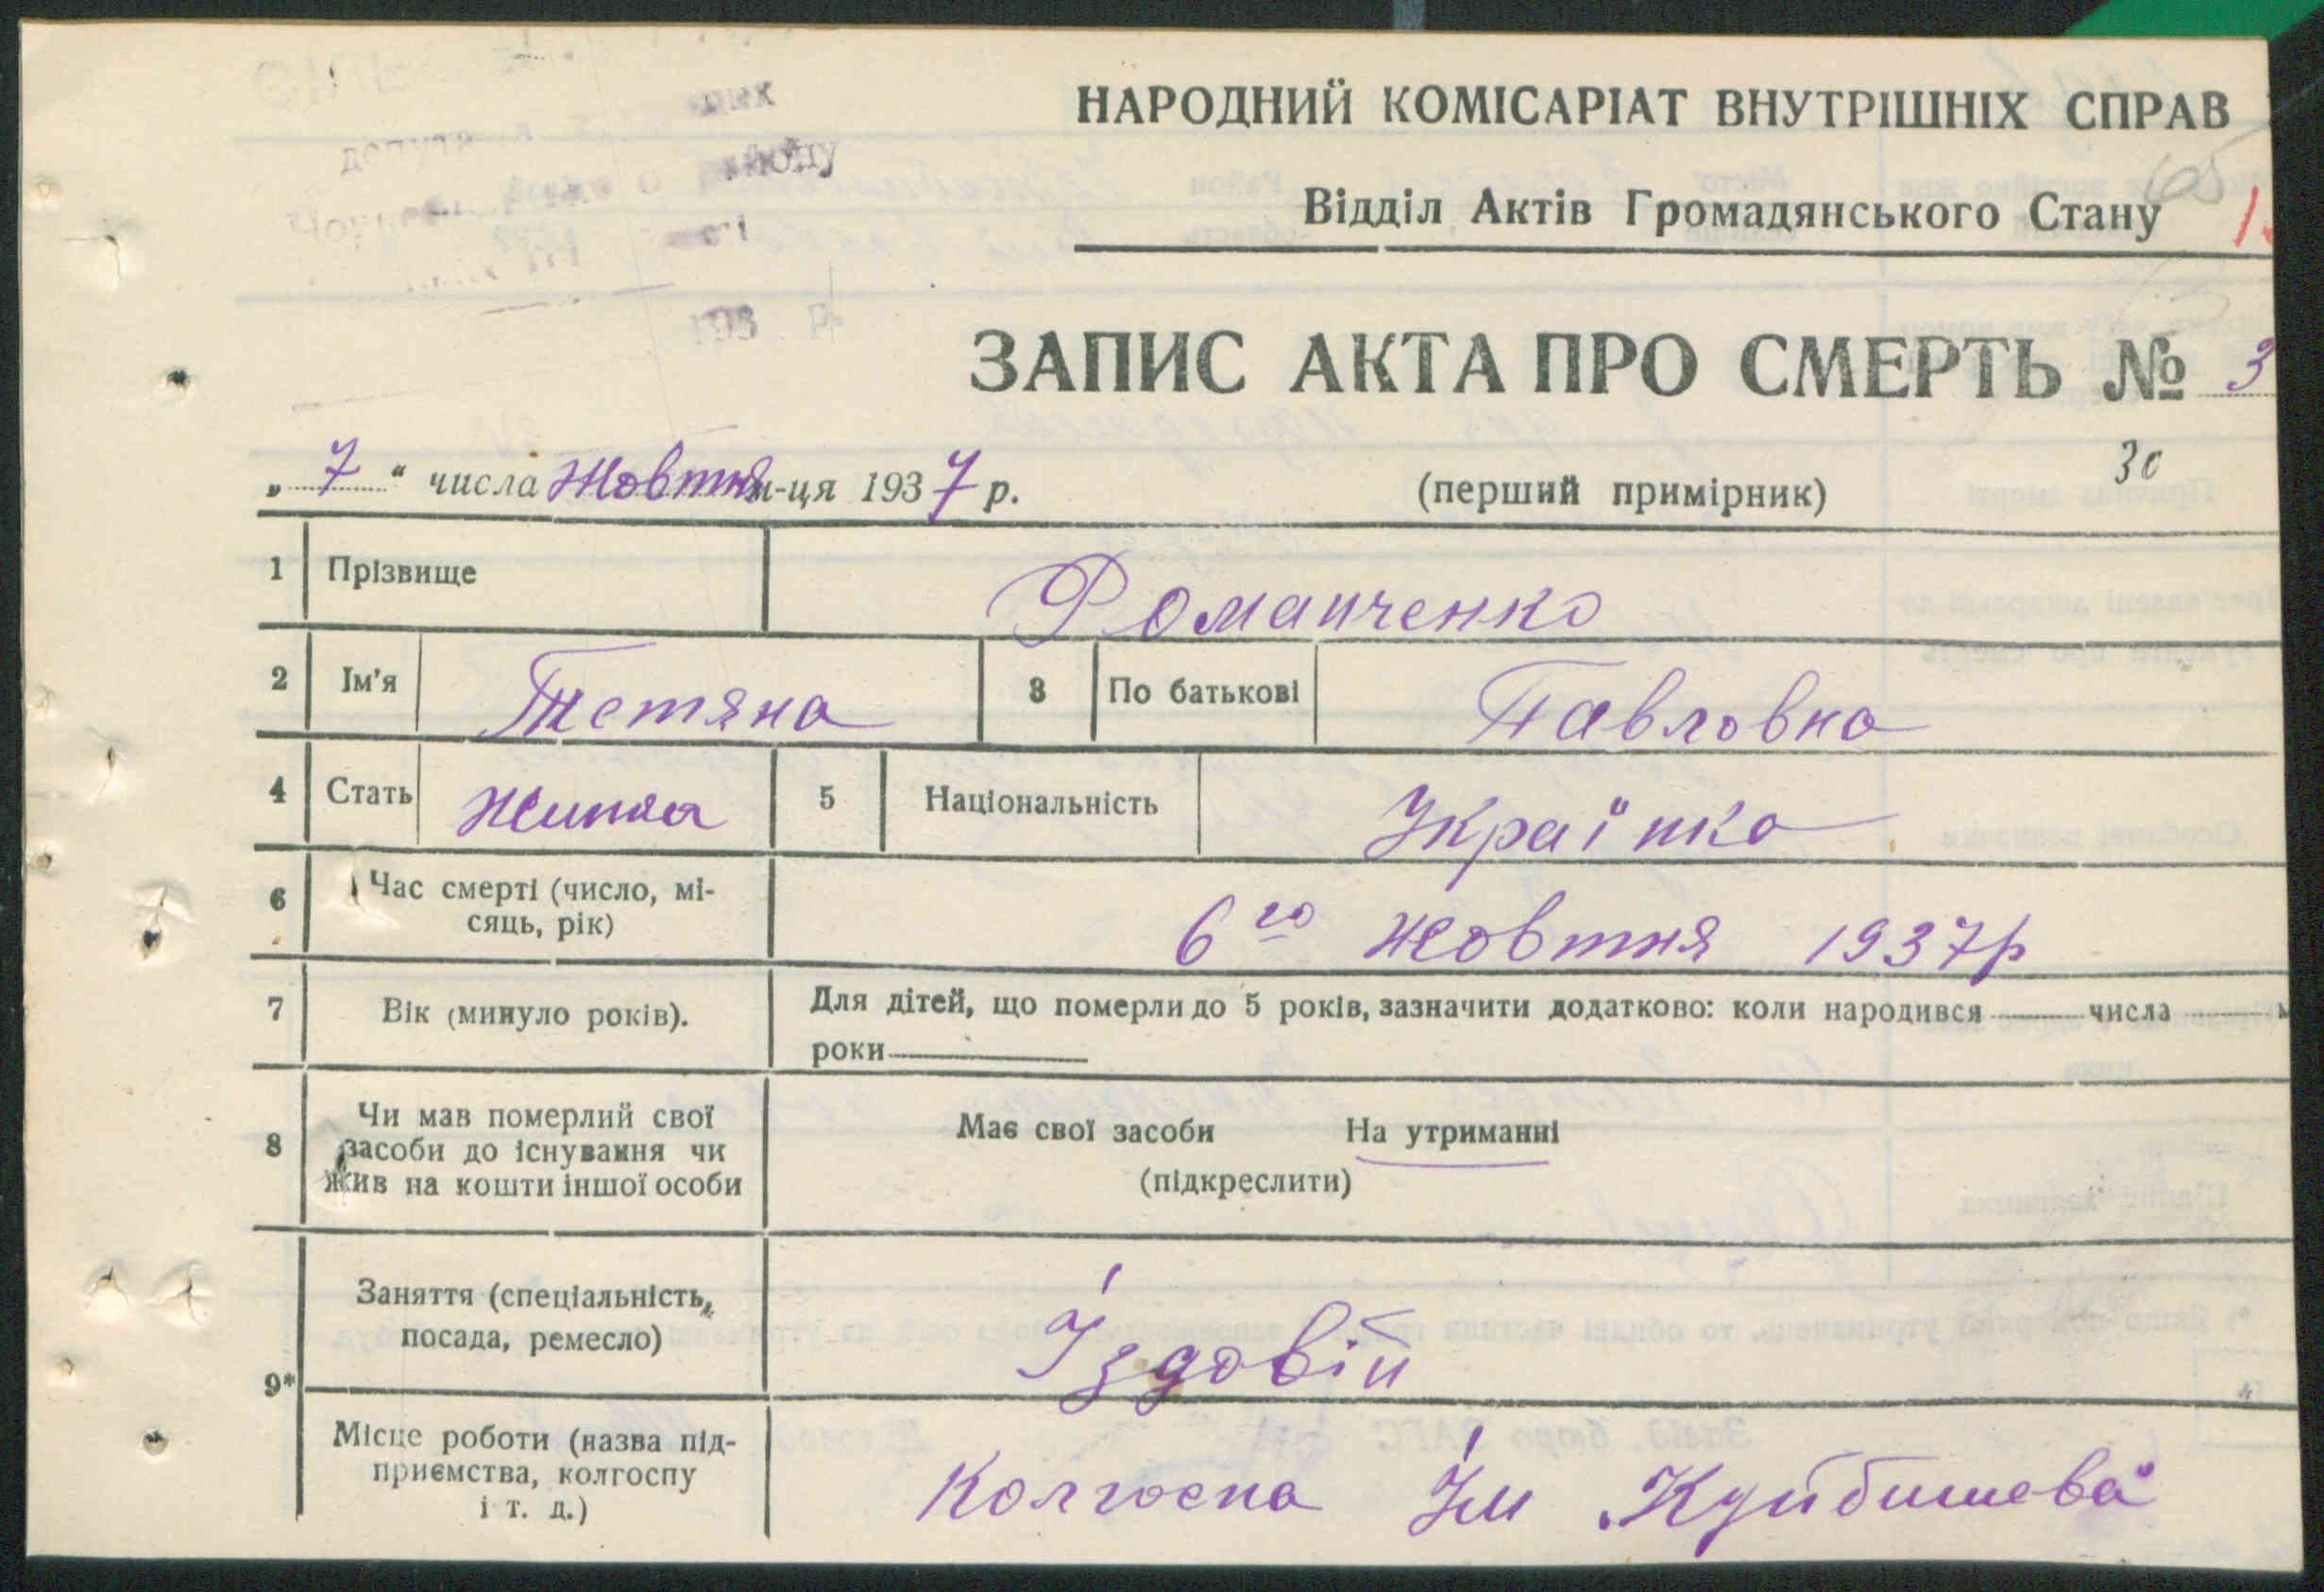 НАРОДНИЙ КОМІСАРІАТ ВНУТРІШНІХ СПРАВ
Відділ Актів Громадянського Стану
193 р.
ЗАПИС АКТА ПРО СМЕРТЬ № 3
30
„7“ числа Жовтня м-ця 1937 р. (перший примірник)
1 Прізвище Романченко
2 Ім'я Тетяна 3 По батькові Павловна
4 Стать Жинка 5 Національність Українка
6 Час смерті (число, мі-
сяць, рік)
6го жовтня 1937р
7 Вік (минуло років). Для дітей, що померли до 5 років, зазначити додатково: коли народився числа
роки
8 Чи мав померлий свої
засоби до існування чи
жив на кошти іншої особи
Має свої засоби На утриманні
(підкреслити)
9*
Заняття (спеціальність,
посада, ремесло)
Їздовій
Місце роботи (назва під-
приємства, колгоспу
і т. д.)
Колгоспа Їм „Куйбишева"